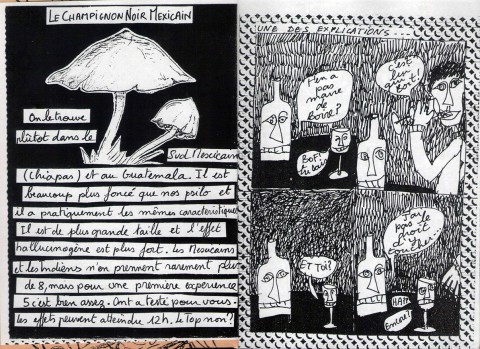 LE CHAMPIGNON NOIR MEXICAIN
On le trouve
plutôt dans le
Sud Mexicain
(Chiapas) et au Guatemala. Il est
beaucoup plus foncé que nos psilo et
il a pratiquement les mêmes caractéristiques
Il est de plus grande taille et l'effet
hallucinogène est plus fort. Les Mexicains
et les Indiens n'en prennent rarement plus
de 8, mais pour une première expérience
5 c'est bien assez. On t'a testé pour vous.
Les effets peuvent atteindre 12h. Le Top non?
UNE DES EXPLICATIONS...
T'en a
pas
marre
de
boire?
BOF!
tu sais
c'est
dur
Boi
ET TOI?
J'ai
pas le
droit
d'y
toucher...
HAM
Encore!